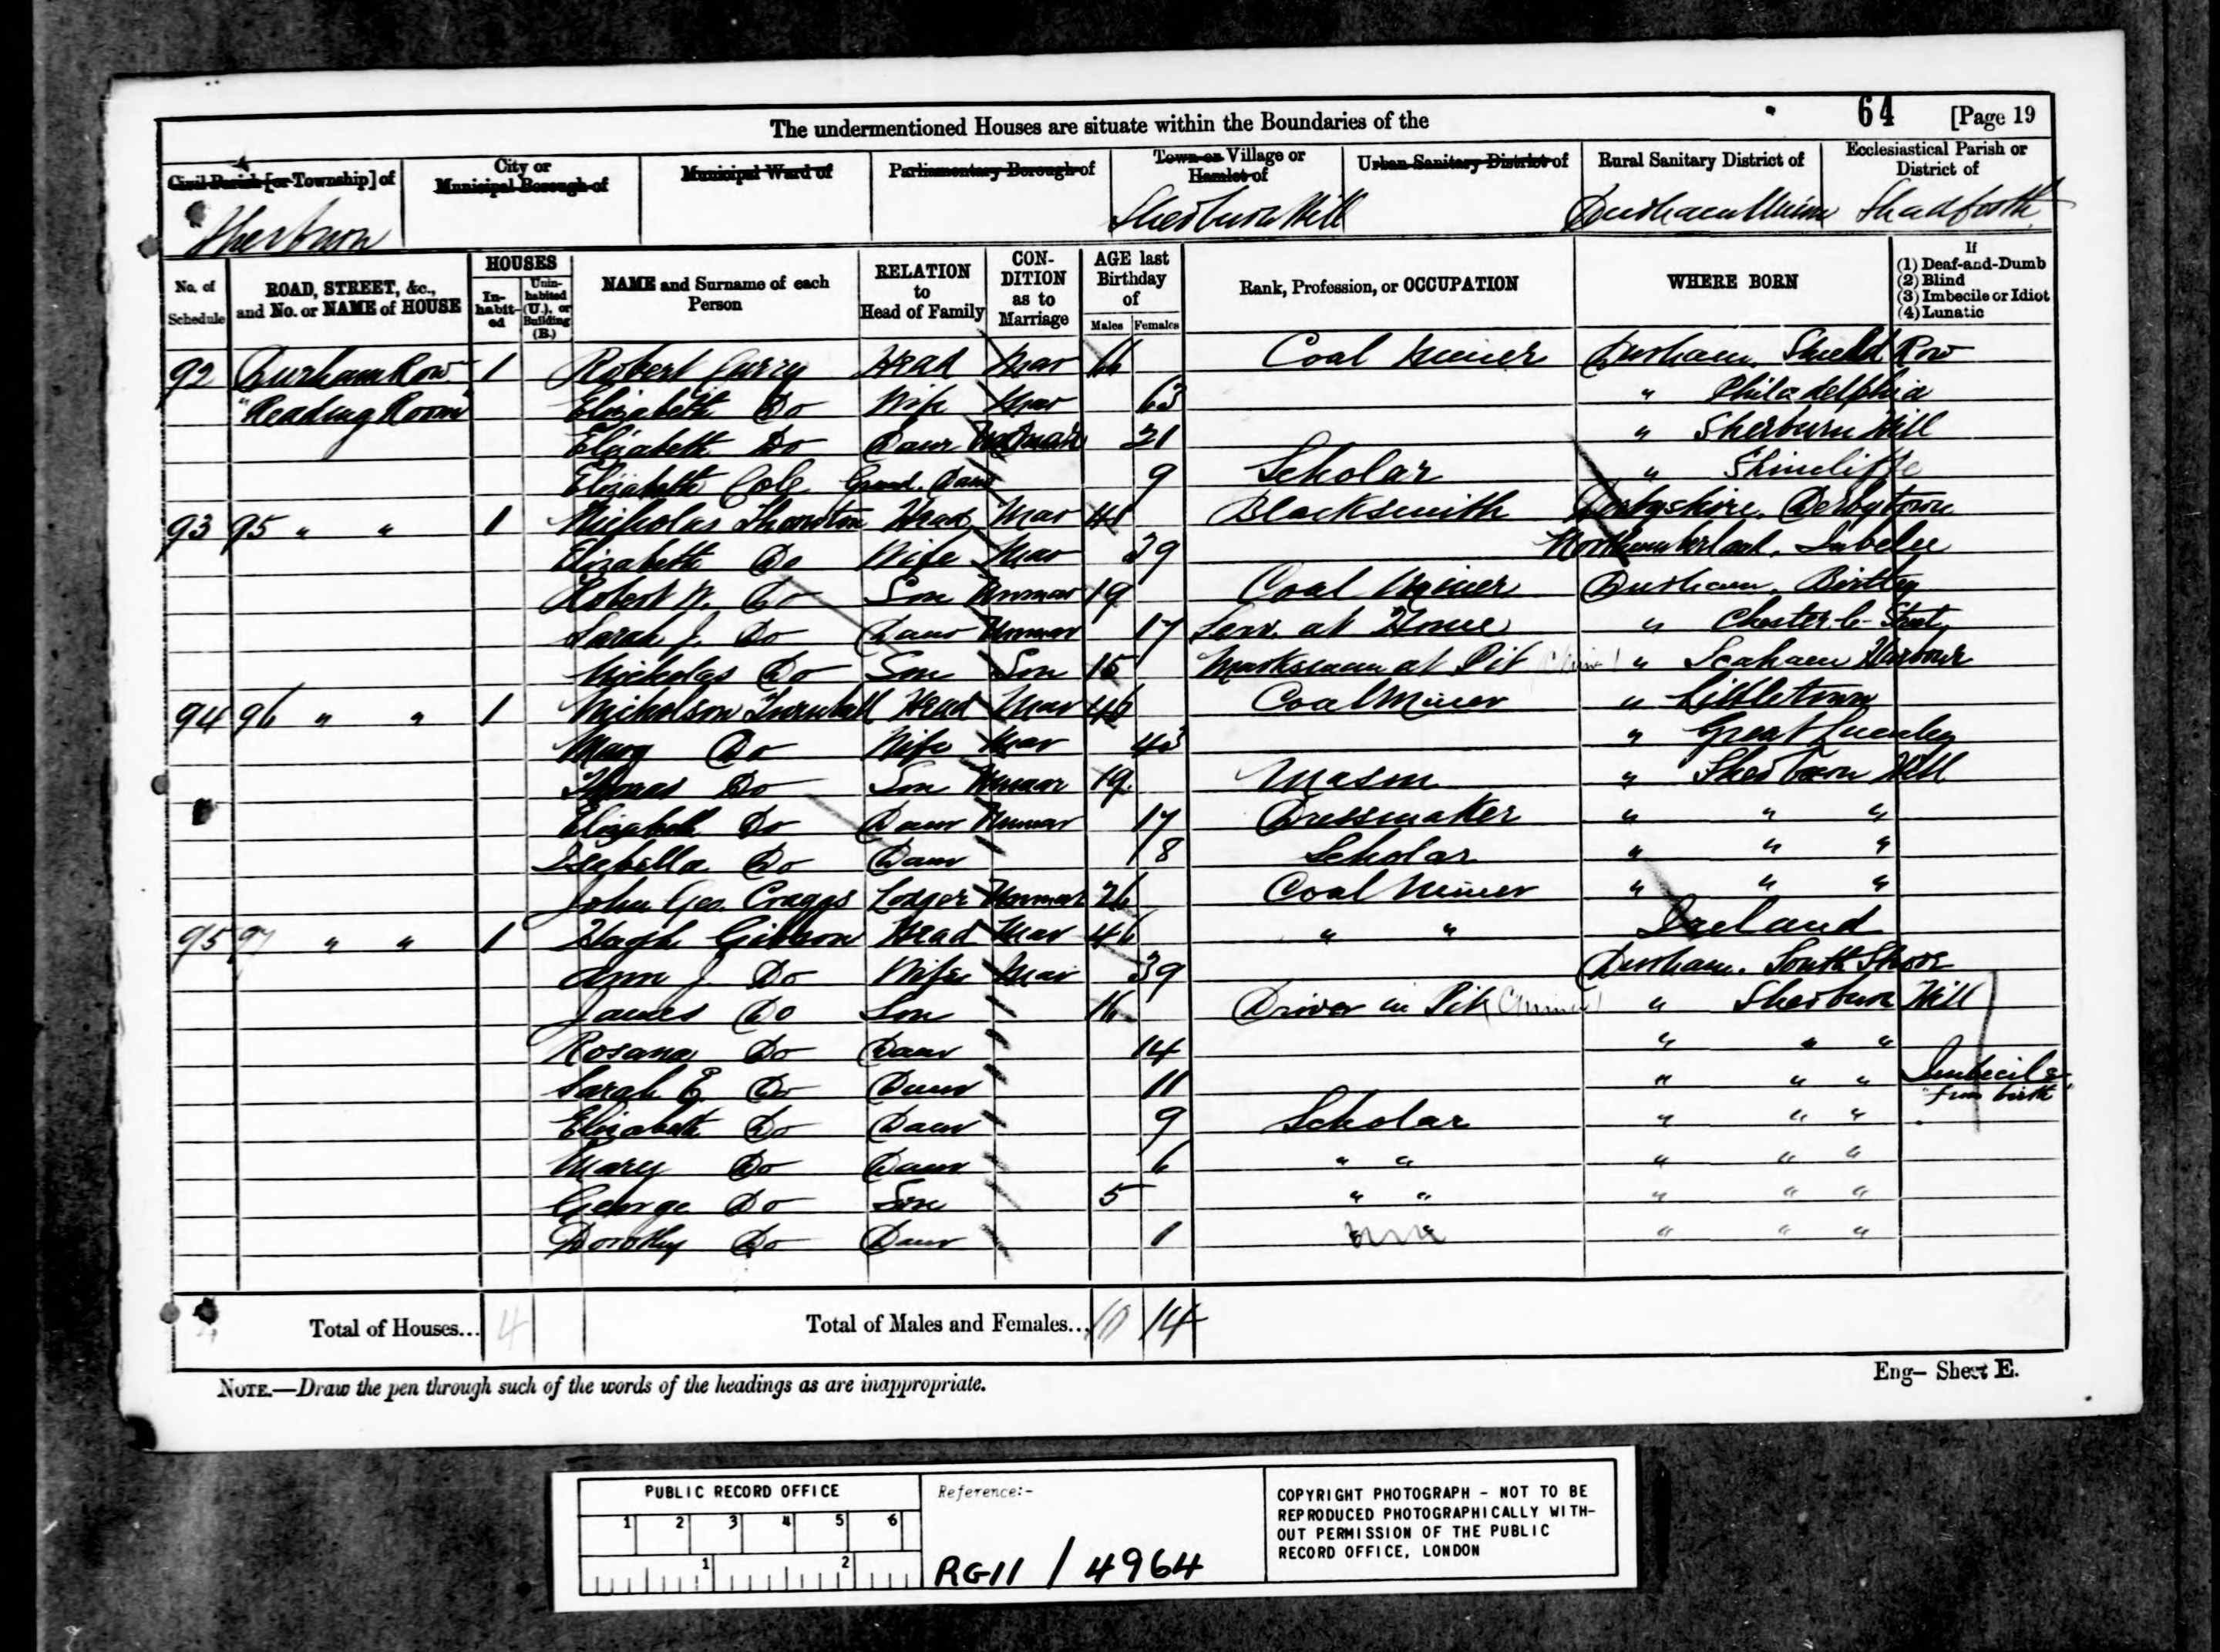 The undermentioned Houses are situate within the Boundaries of the 64 [Page 19
Civil Parish [or Township] of
City or Municipal Borough of
Municipal Ward of
Parliamentary Borough of
Town or Village or Hamlet of
Urban Sanitary District of
Rural Sanitary District of
Ecclesiastical Parish or District of
Sherburn Sherburn Hill Durham Union Shadforth
No. of Schedule
ROAD, STREET, &c., and No. or NAME of HOUSE
HOUSES
Inhabited
Uninhabited (U.), or Building (B.)
NAME and Surname of each Person
RELATION to Head of Family
CONDITION as to Marriage
AGE last Birthday of
Males Females
Rank, Profession, or OCCUPATION
WHERE BORN
If
(1) Deaf-and-Dumb
(2) Blind
(3) Imbecile or Idiot
(4) Lunatic
92 Durham Row 1 Robert Curry Head Mar 66 Coal Miner Durham. Shield Row
"Reading Room" Elizabeth Do Wife Mar 63 " Philadelphia
Elizabeth Do Daur 21 " Sherburn Hill
Elizabeth Cole Grand. Daur 9 Scholar " Shincliffe
93 95 " " 1 Nicholas Thornton Head Mar 41 Blacksmith Derbyshire. Derbytown
Elizabeth Do Wife Mar 39 Northumberland.
Robert N. Do Son Unmar 19 Coal Miner Durham. Birtley
Sarah J. Do Daur Unmar 17 Serv. at Home " Chester-le-Street
Nicholas Do Son Son 15 Marksman at Pit " Seaham Harbour
94 96 " " 1 Nicholson Turnbull Head Mar 46 Coal Miner " Littletown
Mary Do Wife Mar 43 " Great Lumley
Thomas Do Son Unmar 19 Mason " Sherburn Hill
Elizabeth Do Daur Unmar 17 Dressmaker " " "
Isabella Do Daur 8 Scholar " " "
John Geo. Craggs Lodger Unmar 26 Coal Miner " " "
95 97 " " 1 Hugh Gibson Head Mar 46 " " Ireland
Ann J. Do Wife Mar 39 Durham. South Shore
James Do Son 16 Driver in Pit " Sherburn Hill
Rosana Do Daur 14 " " "
Sarah E. Do Daur 11 " " " Imbecile from birth
Elizabeth Do Daur 9 Scholar " " "
Mary Do Daur 6 " " " " "
George Do Son 5 " " " " "
Dorothy Do Daur 1 " " "
Total of Houses... 4 Total of Males and Females... 10 14
NOTE.—Draw the pen through such of the words of the headings as are inappropriate.
Eng— Sheet E.
PUBLIC RECORD OFFICE
1 2 3 4 5 6
1 2
Reference:-
RG11 / 4964
COPYRIGHT PHOTOGRAPH - NOT TO BE
REPRODUCED PHOTOGRAPHICALLY WITH-
OUT PERMISSION OF THE PUBLIC
RECORD OFFICE, LONDON